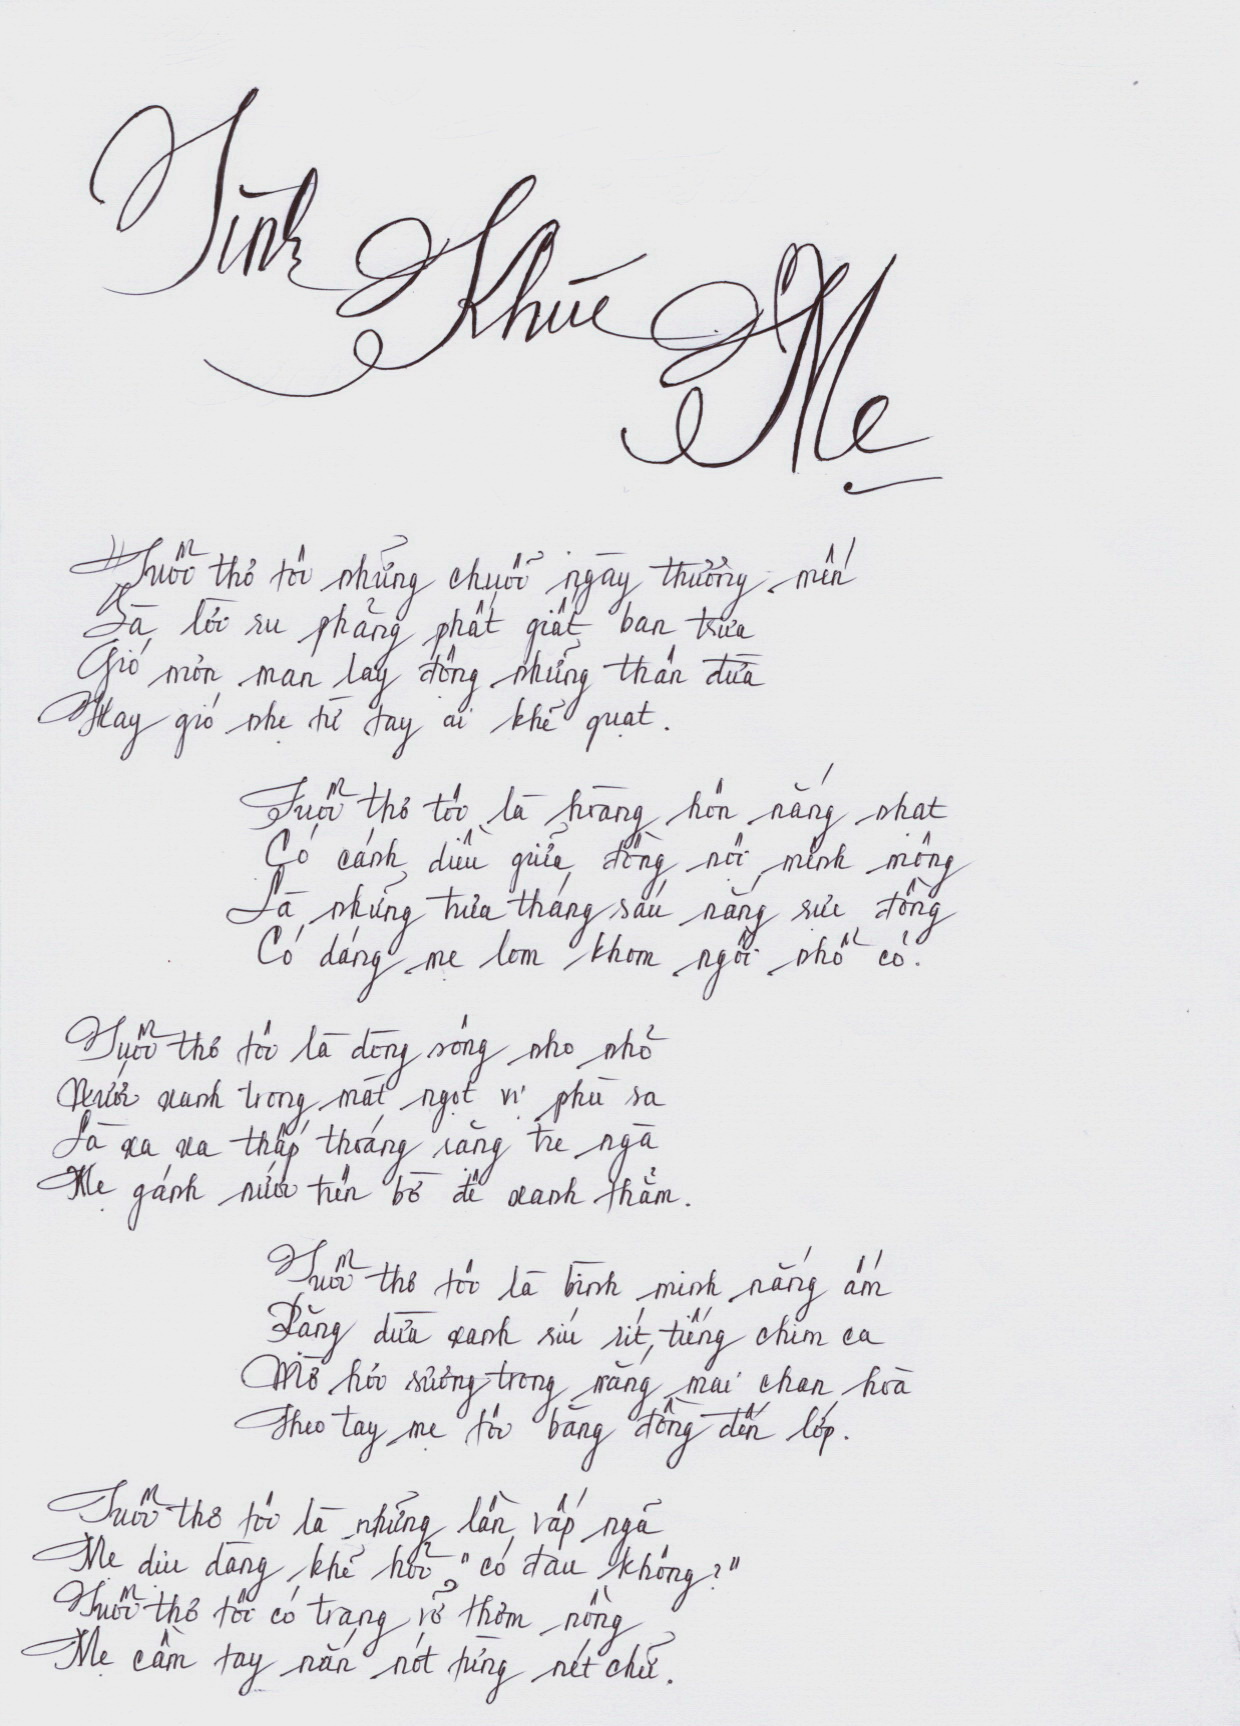 Tình Khúc Mẹ
"Tuổi thơ tôi những chuỗi ngày thương mến
Là lời ru phảng phất giấc ban trưa
Gió mơn man lay động những thân dừa
Hay gió nhẹ từ tay ai khẽ quạt.
Tuổi thơ tôi là hoàng hôn nắng nhạt
Có cánh diều giữa đồng nội mênh mông
Là những trưa tháng sáu nắng rực đồng
Có dáng mẹ lom khom ngồi nhổ cỏ.
Tuổi thơ tôi là dòng sông nho nhỏ
Nước xanh trong mát ngọt vị phù sa
Là xa xa thấp thoáng rặng tre ngà
Mẹ gánh nước trên bờ đê xanh thẳm.
Tuổi thơ tôi là bình minh nắng ấm
Rặng dừa xanh ríu rít tiếng chim ca
Mỗ hơi sương trong nắng mai chan hoà
Theo tay mẹ tôi băng đồng đến lớp.
Tuổi thơ tôi là những lần vấp ngã
Mẹ dịu dàng khẽ hỏi "có đau không?"
Tuổi thơ tôi có trang vở thơm nồng
Mẹ cầm tay nắn nót từng nét chữ.